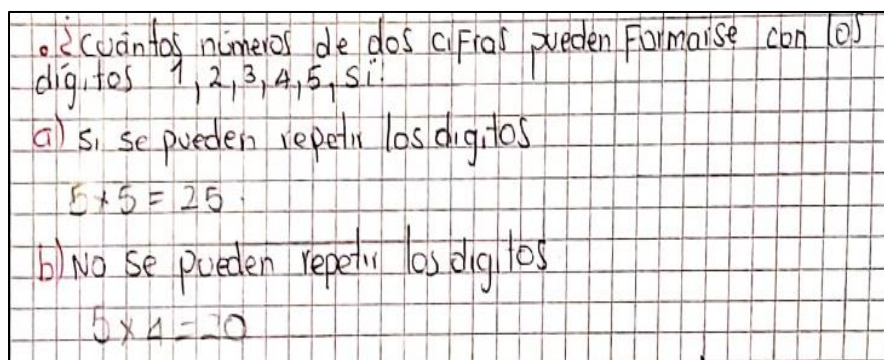 • ¿Cuántos números de dos cifras pueden Formarse con los
dígitos 1, 2, 3, 4, 5, si:
a) si se pueden repetir los digitos
5 x 5 = 25.
b) No se pueden repetir los digitos
5 x 4 = 20